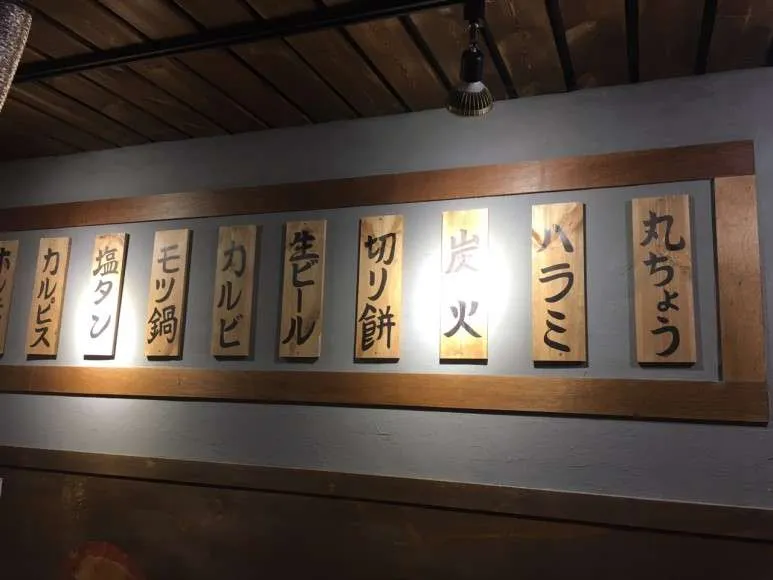 丸ちょう
ハラミ
炭火
切り餅
生ビール
カルビ
モツ鍋
塩タン
カルピス